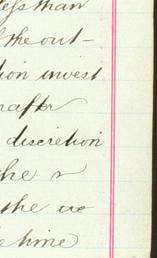 less than
the out-
ion invest
hafter
discretion
the &
the
time